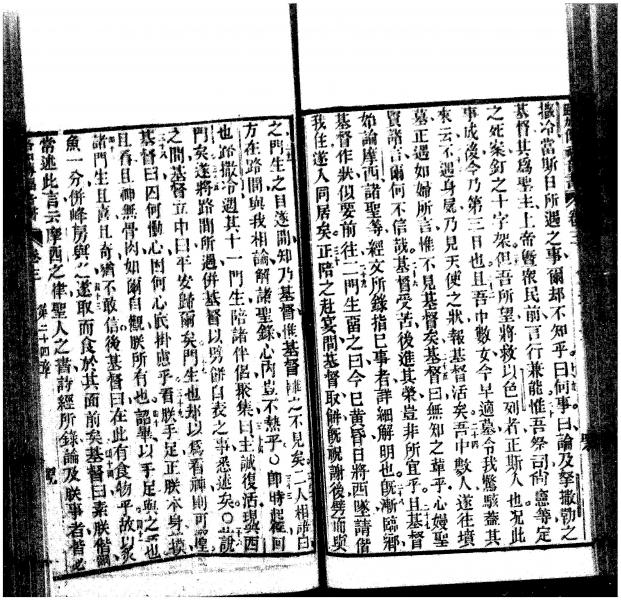 撒冷當斯日所遇之事爾却不知乎曰何事曰論及拏撒勒之
基督其爲聖主上帝曁衆民前言行兼能惟吾祭司尙憲等定
之死案釘之十字架但吾所望將救以色列者正斯人也況此
事成後今乃第三日也且吾中數女今早適墓令我驚駭蓋其
來云不遇身屍乃見天使之狀報基督活矣吾中數人遂往墳
墓正遇如婦所言惟不見基督矣基督曰無知之輩乎心嫚聖
賢諸言爾何不信哉基督受苦後進其榮豈非所宜乎且基督
始論摩西諸聖等經文所錄指己事者詳細解明也旣漸臨鄉
基督作狀似要前往二門生畱之曰今已黃昏日將西墜請偕
我住遂入同居矣正陪之赴宴間基督取餅旣祝謝後劈而與
之門生之目遂開知乃基督惟基督不見矣二人相語曰
方在路間與我相論解諸聖錄心內豈不熱乎○即時起徑回
也路撒冷遇其十一門生陪諸伴侶聚集曰主誠復活現與西
門矣遂將路間所遇併基督以劈餅自表之事悉述矣○正說
之間基督立中曰平安歸爾矣門生也却以爲看神則可惶
基督曰因何慟心因何心掛慮乎看朕手足正朕本身摸
且看且神無骨肉如爾自觀朕所有也詔畢以手足與之也
諸門生且喜且奇猶不敢信後基督曰在此有食物乎故以炙
魚一分併蜂房與之遂取而食於其面前矣基督曰素朕偕爾
常述此言云摩西之律聖人之書詩經所錄論及朕事者皆必
卷三 第二十四章